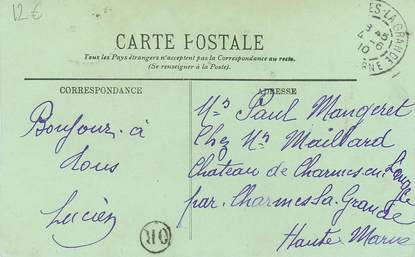 12 €
CARTE POSTALE
Tous les Pays étrangers n'acceptent pas la Correspondance au recto.
(Se renseigner à la Poste).
CORRESPONDANCE
Bonjour à
tous
Lucien
OR
ADRESSE
Mr Paul Mangeret
Chez Mr Maillard
Chateau de Charmes en l'Angle
par Charmes La Grande
Haute Marne
ES-LA-GRANDE
3 45
4 - 6
10
RNE